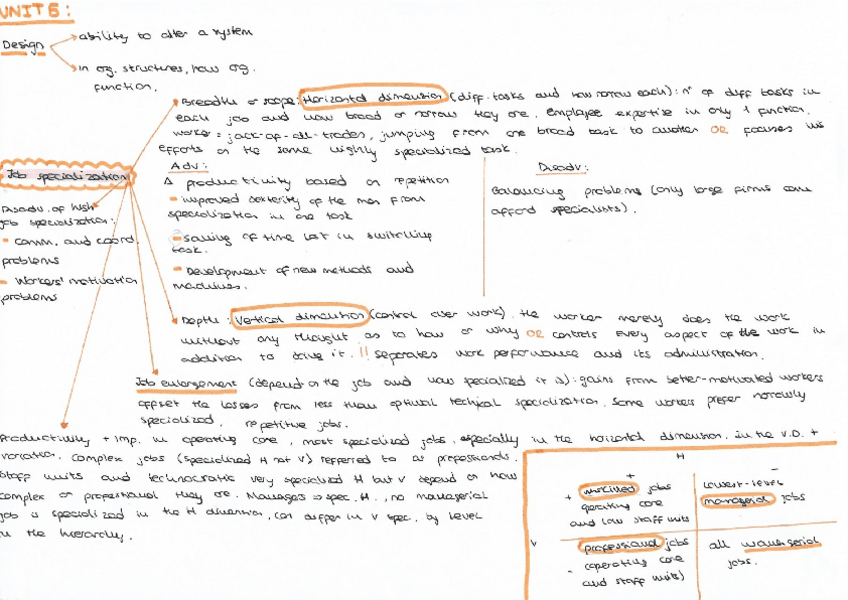 UNIT 5:
Design
ability to alter a system
in org. structures, how org.
function.
Breadth or scope: Horizontal dimension (diff. tasks and how narrow each): nº of diff tasks in
each job and how broad or narrow they are. Employee expertise in only 1 function.
worker = jack-of-all-trades, jumping from one broad task to another OR focuses his
efforts on the same highly specialized task.
Job specialization
Adv:
Δ productivity based on repetition
- improved dexterity of the man from
specialization in one task
- Saving of time lost in switching
task.
- Development of new methods and
machines.
Disadv:
Balancing problems (only large firms can
afford specialists).
Disadv. of high
job specialization:
- comm. and coord.
problems
- Workers' motivation
problems
Depth: Vertical dimension (control over work). the worker merely does the work
without any thought as to how or why OR controls every aspect of the work in
addition to doing it. !! Separates work performance and its administration.
Job enlargement (depend on the job and how specialized it is): gains from better-motivated workers
offset the losses from less than optimal technical specialization. Some workers prefer narrowly
specialized, repetitive jobs.
Productivity + imp. in operating core, most specialized jobs, especially in the horizontal dimension. in the V.D. +
variation. Complex jobs (specialized H not V) referred to as professionals.
Staff units and technocratic very specialized H but V depend on how
complex or professional they are. Manages => spec. H., no managerial
job is specialized in the H dimension, can differ in V spec. by level
in the hierarchy.
H
+ -
V
+ unskilled jobs
operating core
and low staff units
lowest-level
managerial jobs
- professional jobs
(operating core
and staff units)
all managerial
jobs.